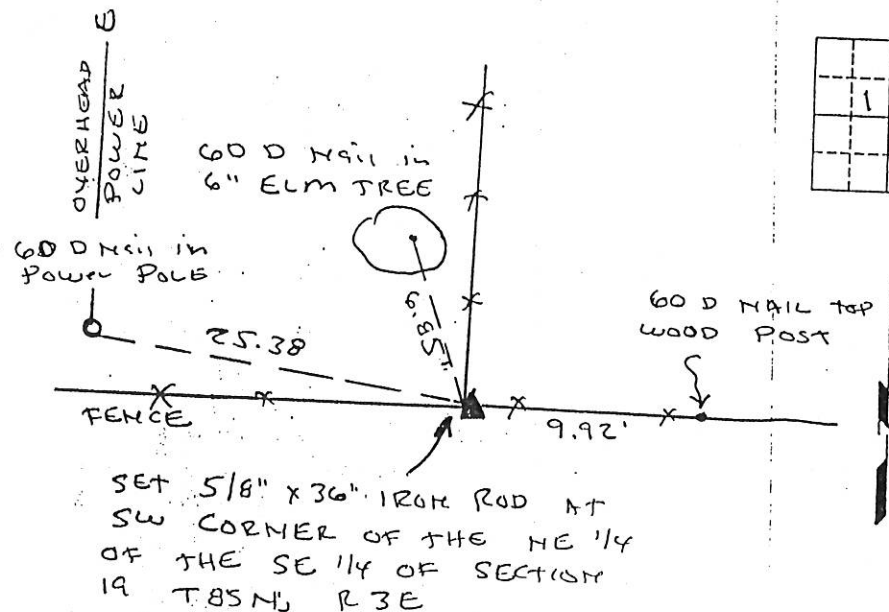 OVERHEAD
POWER
LINE
E
60 D Nail in
6" ELM TREE
1
60 D Nail in
Power POLE
60 D NAIL TOP
WOOD POST
25.38
6.85'
FENCE
9.92'
SET 5/8" x 36" IRON ROD AT
SW CORNER OF THE NE 1/4
OF THE SE 1/4 OF SECTION
19 T85N, R3E